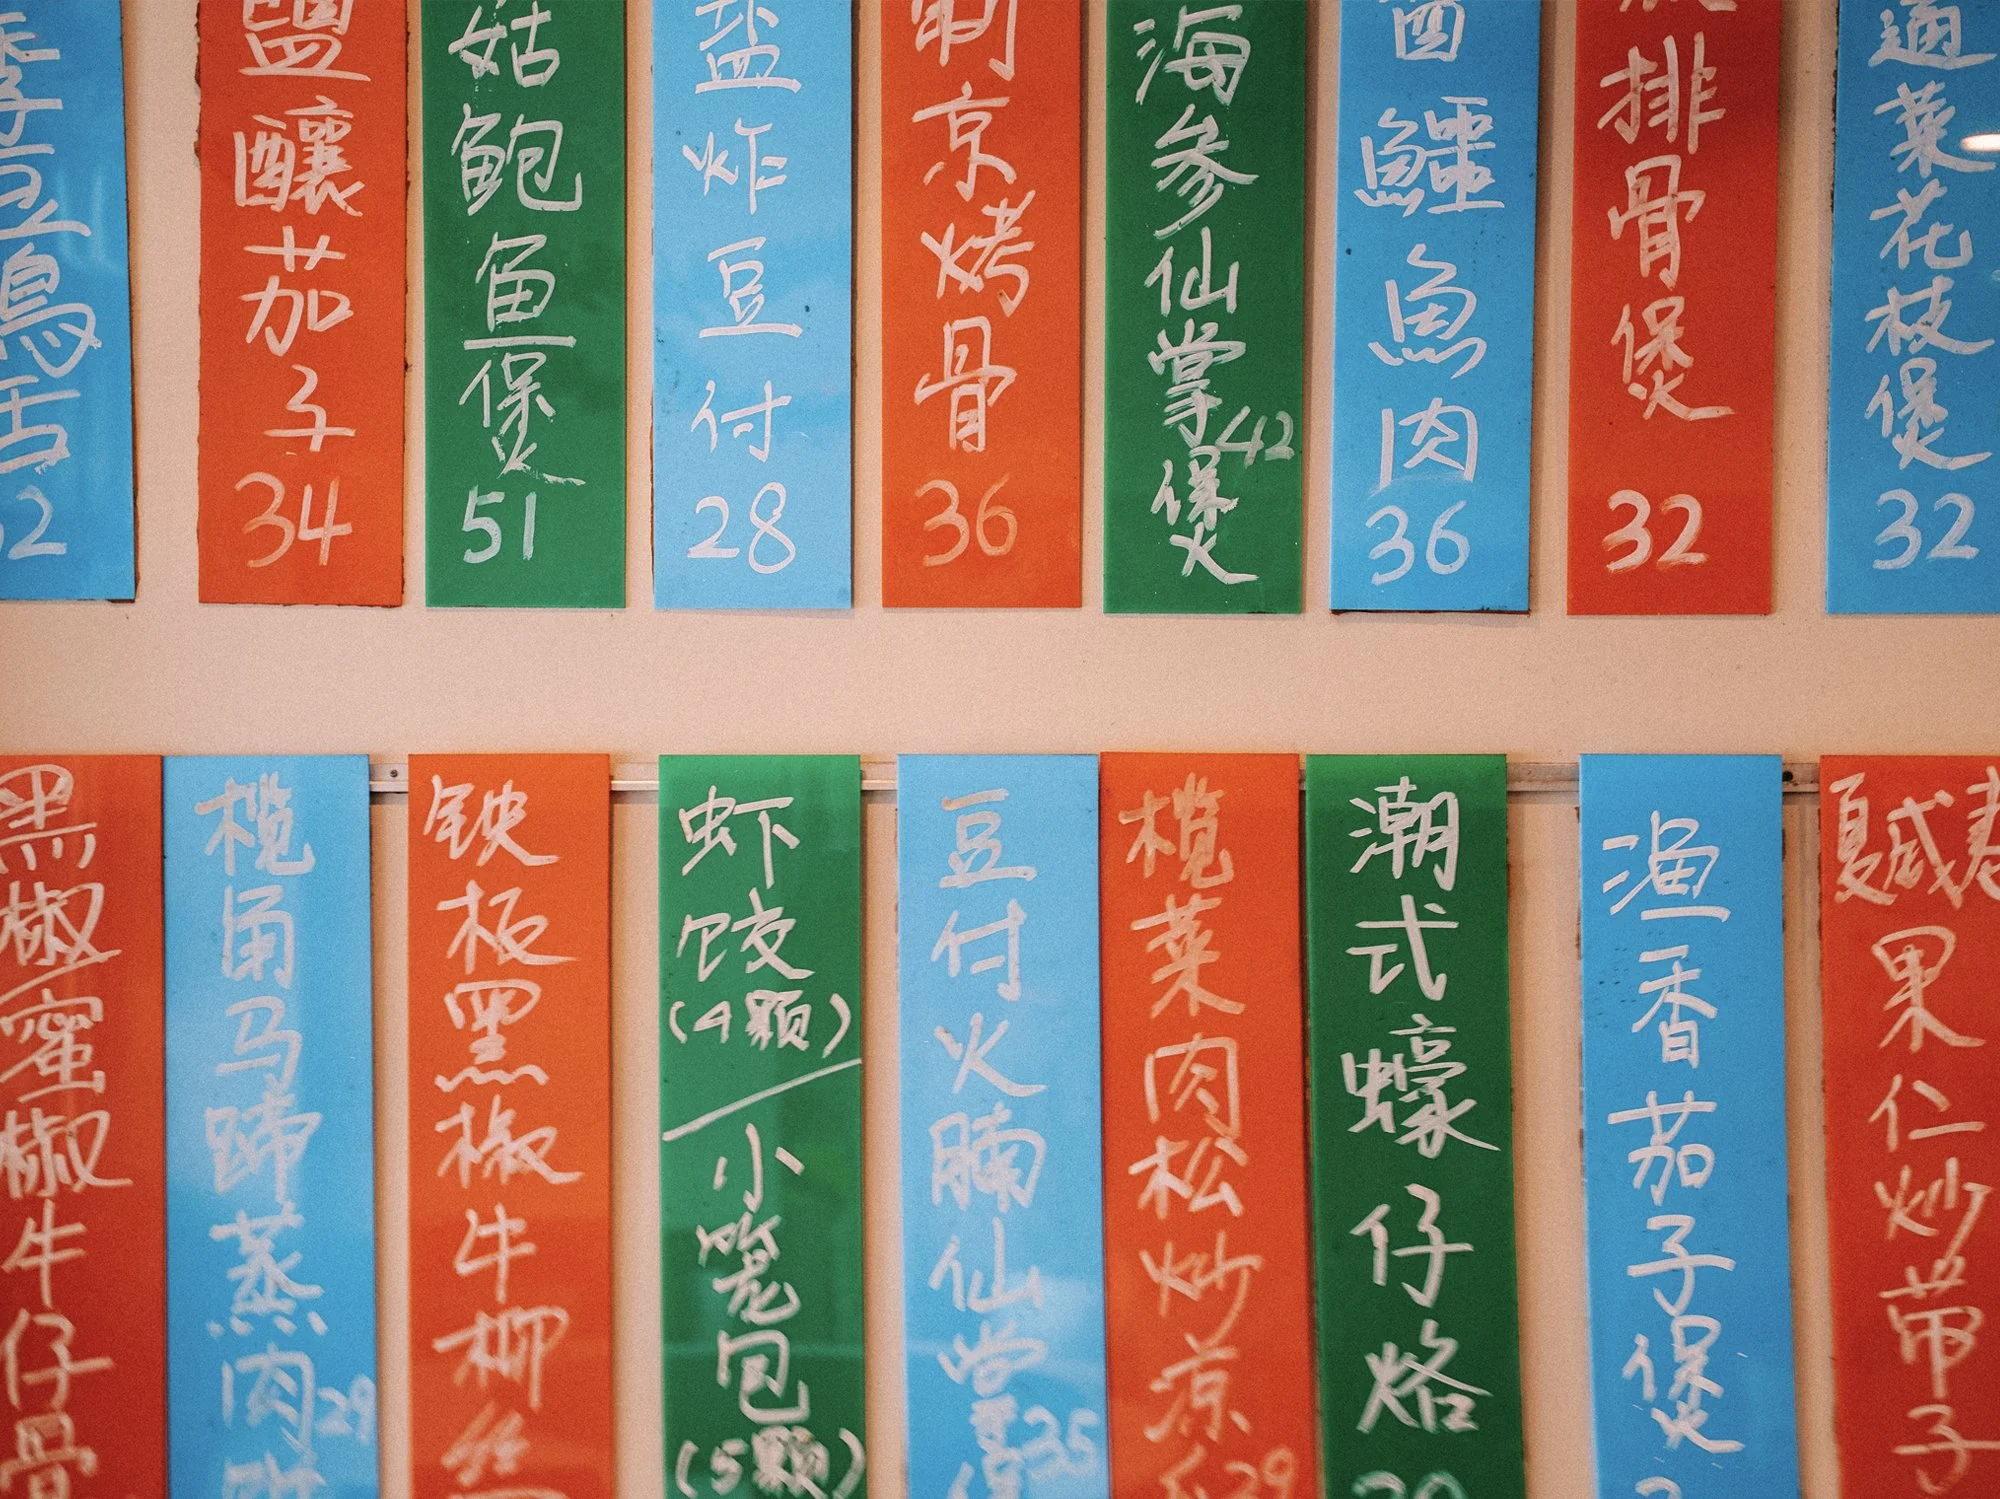 季豆鳥舌
鹽釀茄子
34
姑鮑鱼煲
51
盐炸豆付
28
制京烤骨
36
海参仙掌煲
42
鱷魚肉
36
排骨煲
32
通菜花枝煲
32
黑椒蜜椒牛仔骨
榄角马蹄蒸肉
29
铁板黑椒牛柳丝
虾饺
(4颗)
小笼包
(5颗)
豆付火腩仙掌煲
35
榄菜肉松炒凉瓜
29
潮式蠔仔烙
渔香茄子煲
夏威
果仁炒带子